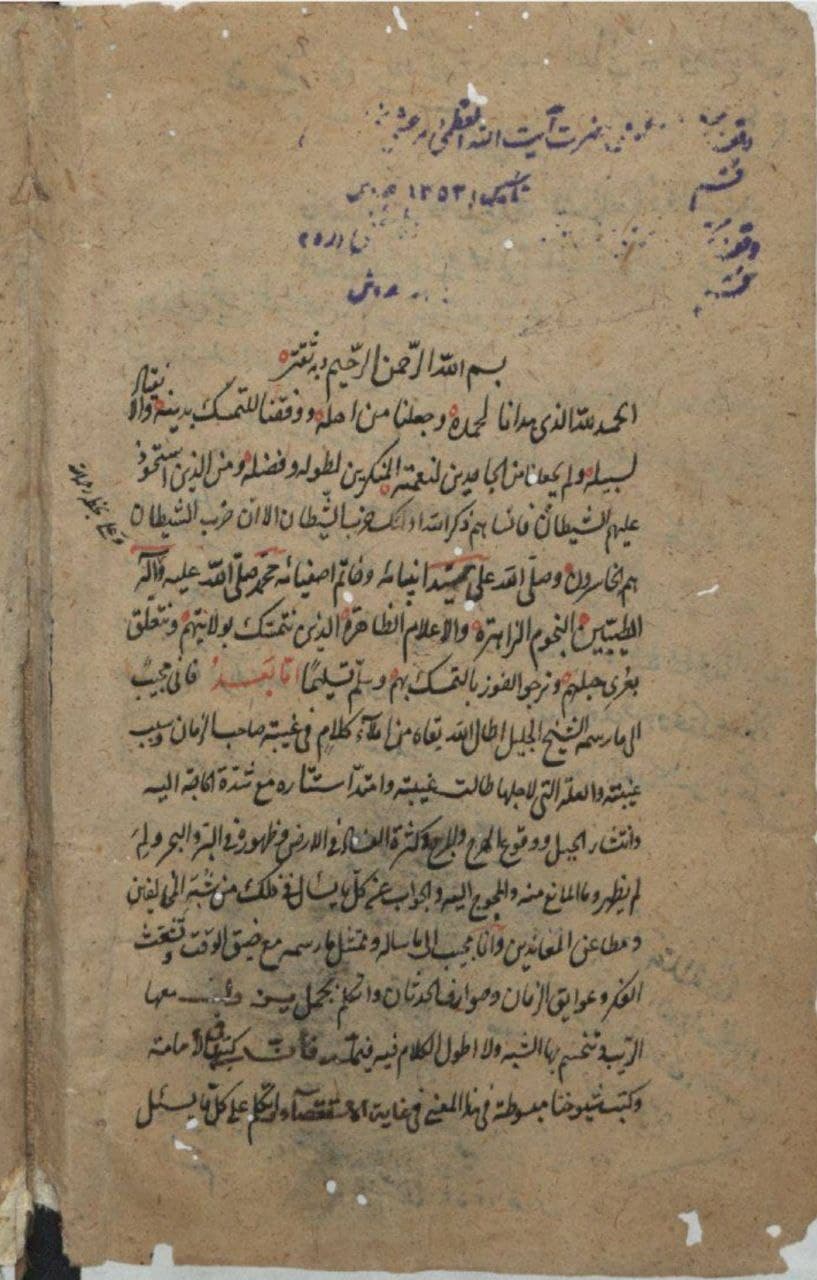 حضرت آیت الله العظمی
قم
۱۳۵۳
بسم الله الرحمن الرحیم وبه ثقتی
الحمد لله الذی هدانا لحمده وجعلنا من اهله ووفقنا للتمسک بدینه والانقیاد
لسبیله ولم یجعلنا من الجاحدین لنعمته المنکرین لطوله وفضله ومن الذین استحوذ
علیهم الشیطان فانساهم ذکر الله اولئک حزب الشیطان الا ان حزب الشیطان
هم الخاسرون وصلی الله علی سید انبیائه وخاتم اصفیائه محمد صلی الله علیه وآله
الطیبین النجوم الزاهرة والاعلام الظاهرة الذین نتمسک بولایتهم ونتعلق
بعری حبلهم ونرجو الفوز بالتمسک بهم وسلم تسلیما اما بعد فانی مجیب
الی ما رسمه الشیخ الجلیل اطال الله بقاه من املآء کلام فی غیبة صاحب الزمان وسبب
غیبته والعلة التی لاجلها طالت غیبته وامتد استتاره مع شدة الحاجة الیه
وانتشار الحیل ووقوع الهرج والمرج وکثرة الفساد فی الارض وظهوره فی البر والبحر ولم
لم یظهر وما المانع منه والمحوج الیه والجواب عن کل ما یسأل فی ذلک من شبه المخالفین
ومطاعن المعاندین وانا مجیب الی ما ساله وممتثل ما رسمه مع ضیق الوقت وتشعث
الفکر وعوایق الزمان وصوارف الحدثان واتکلم بجمل معها
الریب وتنحسم بها الشبه ولا اطول الکلام فیه فان کتبی فی الامامة
وکتب شیوخنا مبسوطة فی هذا المعنی فی غایة الاستقصآء واتکلم علی کل ما یسئل